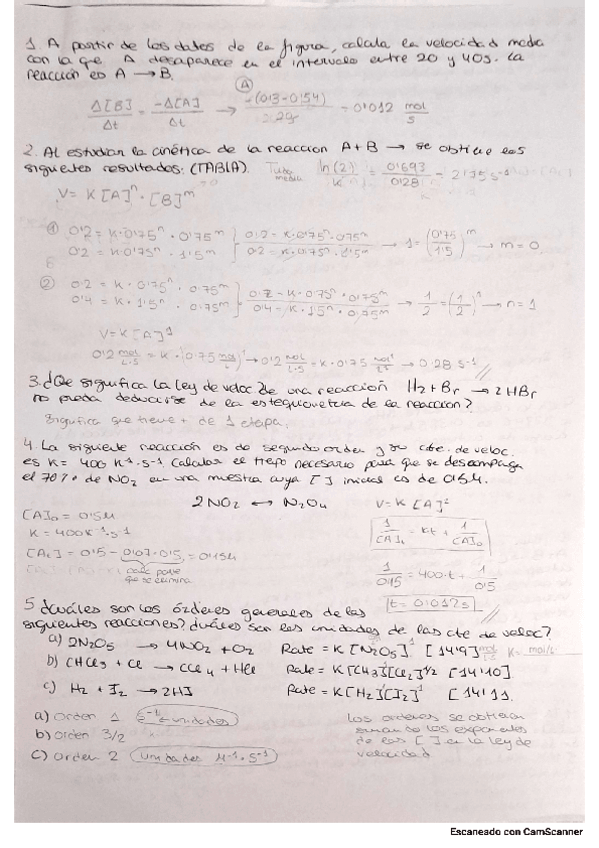 1. A partir de los datos de la figura, calcula la velocidad media
con la que A desaparece en el intervalo entre 20 y 40s. La
reacción es A → B.
Δ[B]/Δt = -Δ[A]/Δt → -(0'13-0'54)/ = 0'012 mol/s
2. Al estudiar la cinética de la reacción A+B → se obtiene los
siguientes resultados: (TABLA). ln(2)/k = 0'693/0'28 =
V = K[A]ⁿ · [B]ᵐ
① 0'2 = K·0'75ⁿ · 0'75ᵐ } 0'2 = K·0'75ⁿ·0'75ᵐ → 1 = (0'75/1'5)ᵐ → m = 0
0'2 = K·0'75ⁿ · 1'5ᵐ 0'2 = K·0'75ⁿ·1'5ᵐ
② 0'2 = K·0'75ⁿ · 0'75ᵐ } 0'2 = K·0'75ⁿ·0'75ᵐ → 1/2 = (1/2)ⁿ → n = 1
0'4 = K·1'5ⁿ · 0'75ᵐ 0'4 = K·1'5ⁿ·0'75ᵐ
V = K[A]¹
0'2 mol/L·s = K·(0'75 mol/L)¹ → 0'2 mol/L·s = K·0'75 → 0'28 s⁻¹
3. ¿Que significa la ley de veloc de una reacción H₂ + Br → 2HBr
no pueda deducirse de la estequiometria de la reaccion?
Significa que tiene + de 1 etapa.
4. La siguiente reacción es de segundo orden y su cte. de veloc.
es K = 400 K⁻¹·s⁻¹ Calcular el tiepo necesario para que se descompnga
el 70% de NO₂ en una muestra cuya [ ] inicial es de 0'5M.
2NO₂ ⟷ N₂O₄ V = K[A]²
[A]₀ = 0'5M
K = 400K⁻¹·s⁻¹ 1/[A]ₜ = Kt + 1/[A]₀
[Aₜ] = 0'5 - 0'07·0'5 = 0'15M
cada parte
que se elimina
1/0'15 = 400·t + 1/0'5
t = 0'012s
5. ¿Cuáles son los órdenes generales de las
siguientes reacciones? ¿Cuáles son las unidades de las cte de veloc?
a) 2N₂O₅ → 4NO₂ + O₂ Rate = K[N₂O₅]¹ [14'9]
b) CHCl₃ + Cl → CCl₄ + HCl Rate = K[CH₃][Cl₂]¹/² [14'10]
c) H₂ + I₂ → 2HI Rate = K[H₂]¹[I₂]¹ [14'11
a) Orden 1 s⁻¹ unidades
b) orden 3/2
c) Orden 2 Unidades M⁻¹·s⁻¹
Los ordenes se obtienen
sumando los exponentes
de las [ ] en la ley de
velocidad
Escaneado con CamScanner